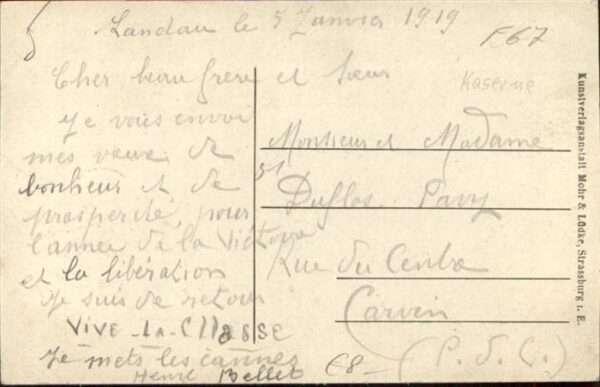 Landau le 5 Janvier 1919
F67
Cher beau frere et Soeur
Je vous envoi
mes voeux de
bonheur et de
prosperité, pour
l'année de la Victoire
et la libération
Je suis de retour
VIVE-LA-Cllasse
Je mets les cannes
Henri Bellet
Kaserne
Monsieur et Madame
Duflos-Pavy
51
Rue du Centre
Carvin
(P. d. C.)
€8-
Kunstverlagsanstalt Mohr & Lüdke, Strassburg i. E.